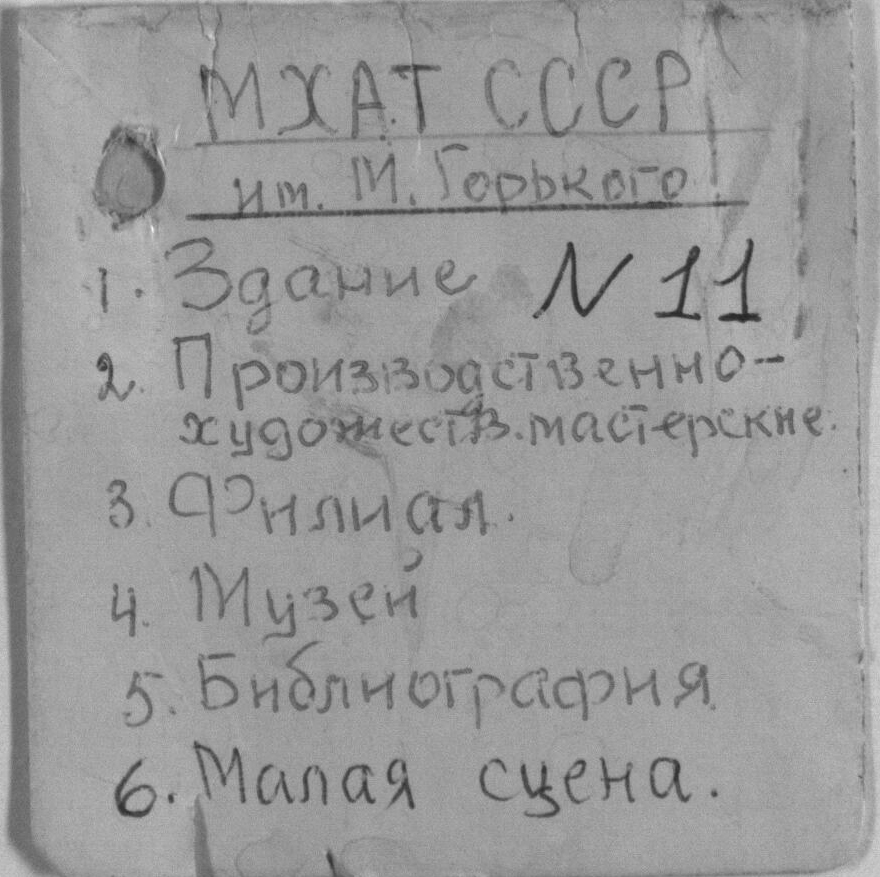 МХАТ СССР
им. М. Горького
1. Здание N 11
2. Производственно-
художеств. мастерские.
3. Филиал.
4. Музей
5. Библиография.
6. Малая сцена.